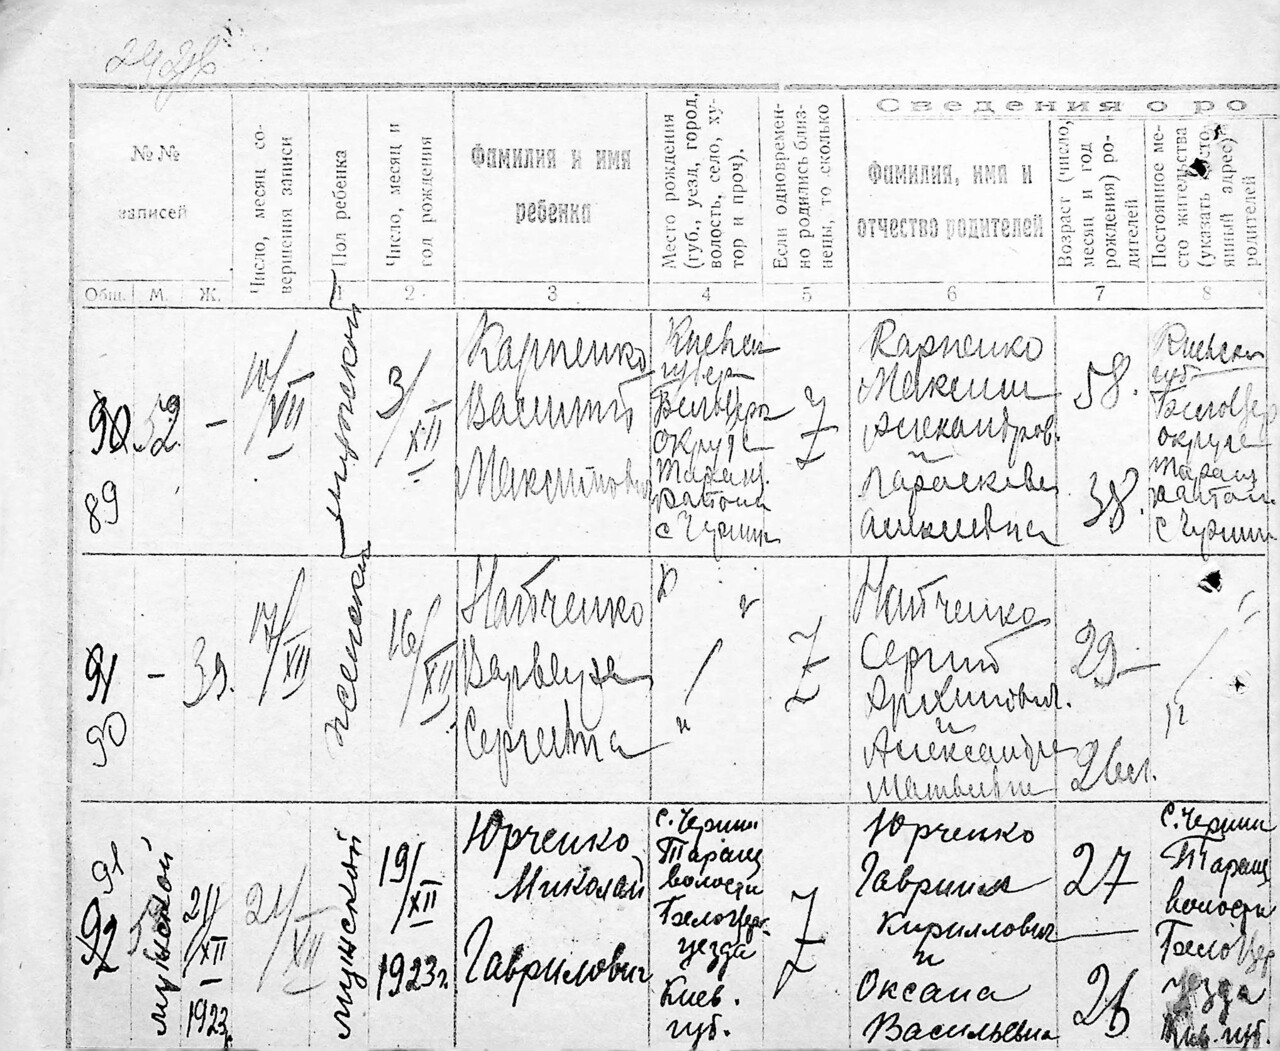 Сведения о ро
№№
записей
Число, месяц со-
вершения записи
Пол ребенка
Число, месяц и
год рождения
Фамилия и имя
ребенка
Место рождения
(губ., уезд, город,
волость, село, ху-
тор и проч).
Если одновремен-
но родились близ-
нецы, то сколько
Фамилия, имя и
отчество родителей
Возраст (число,
месяц и год
рождения) ро-
дителей
Постоянное ме-
сто жительства
(указать
янный адрес)
родителей
Общ. М. Ж. 1 2 3 4 5 6 7 8
90
89
52.
–
10/XII
мужской
3/XII
Карпенко
Василий
Максимович
Киевск
губер
Белоцерк
округе
Таращ.
кантона
с Черин
Z
Карпенко
Максим
Александров.
и
Параскева
Алексеевна
58.
38.
Киевская
губ
Белоцер
округе
Таращ
кантон.
с Черин
91
90
–
39.
17/XII
женский
16/XII
Натченко
Варвара
Сергеевна
"
Z
Натченко
Сергий
Архипович.
и
Александра
Матвеевна
29
26 л.
"
92
91
мужской
21/XII
1923
21/XII
мужской
19/XII
1923г.
Юрченко
Миколай
Гаврилович
с. Черин
Таращ
волости
Белоцер.
уезда
Киев.
губ.
Z
Юрченко
Гавриил
Кириллович
и
Оксана
Васильевна
27
26
с. Черин
Таращ
волости
Белоцер
уезда
Киев. губ.